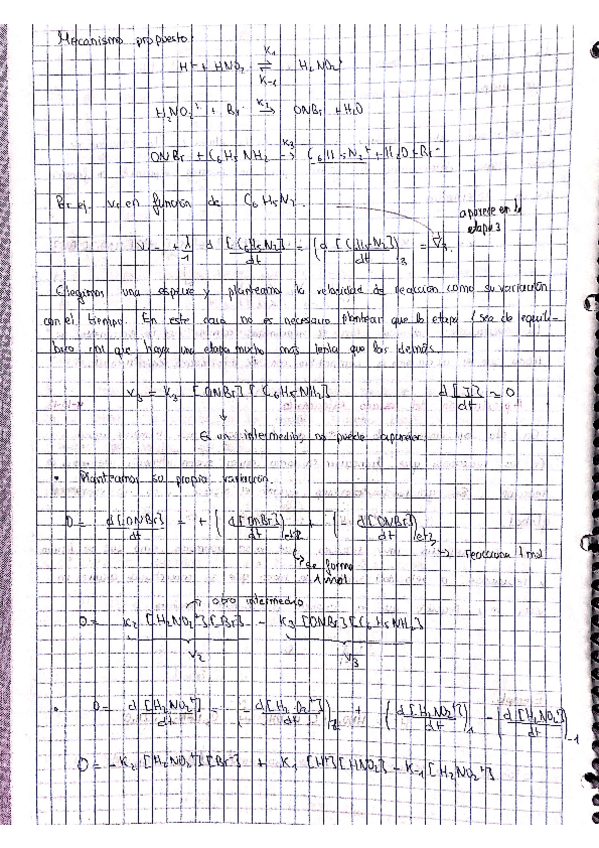 Mecanismo propuesto:
H⁺ + HNO₂ ⇌ H₂NO₂⁺
K₁
K₋₁
H₂NO₂⁺ + Br⁻ →K₂ ONBr + H₂O
ONBr + C₆H₅NH₂ →K₃ C₆H₅N₂⁺ + H₂O + Br⁻
en función de C₆H₅N₂⁺
aparece en la
etapa 3
+ 1/1 d[C₆H₅N₂⁺]/dt = (d[C₆H₅N₂⁺]/dt)₃ = V₃
Elegimos una especie y planteamos la velocidad de reacción como su variación
con el tiempo. En este caso no es necesario plantear que la etapa 1 sea de equili-
brio ni que haya una etapa mucho más lenta que las demás.
v₃ = K₃ [ONBr][C₆H₅NH₂] d[I]/dt ≈ 0
↓
Es un intermedio, no puede aparecer.
• Planteamos su propia variación.
0 = d[ONBr]/dt = + (d[ONBr]/dt)et2 + (- d[ONBr]/dt)et3
↳ se forma
1 mol
→ reacciona 1 mol
→ otro intermedio
0 = K₂ [H₂NO₂⁺][Br⁻] - K₃ [ONBr][C₆H₅NH₂]
V₂ V₃
• 0 = d[H₂NO₂⁺]/dt = - (d[H₂NO₂⁺]/dt)₂ + (d[H₂NO₂⁺]/dt)₁ - (d[H₂NO₂⁺]/dt)₋₁
0 = - K₂ [H₂NO₂⁺][Br⁻] + K₁ [H⁺][HNO₂] - K₋₁ [H₂NO₂⁺]